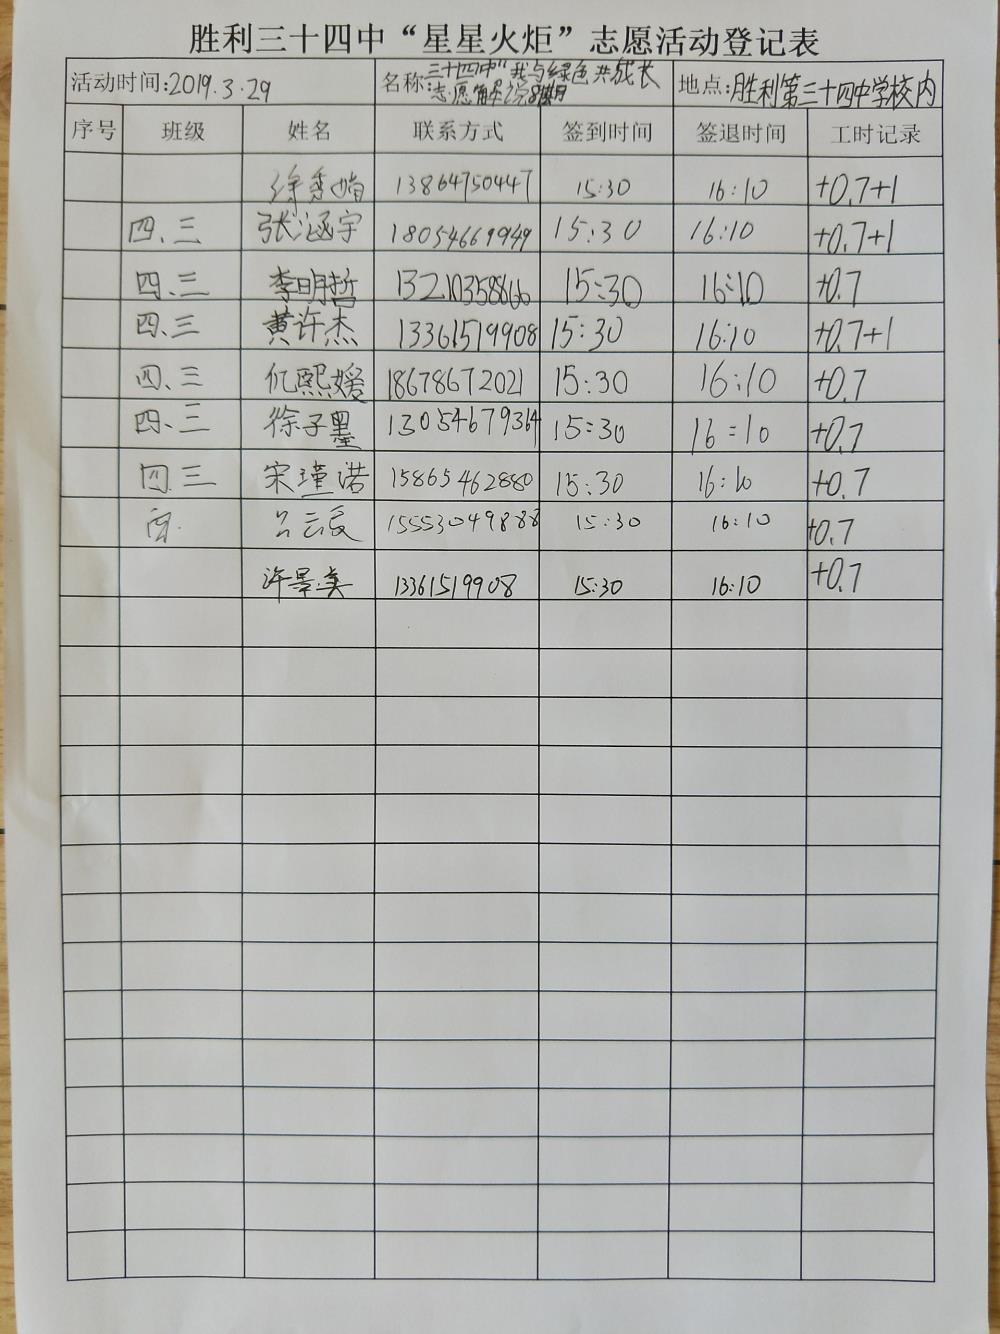 胜利三十四中“星星火炬”志愿活动登记表
活动时间:2019.3.29 名称:三十四中"我与绿色共成长 志愿解说8期 地点:胜利第三十四中学校内
序号 班级 姓名 联系方式 签到时间 签退时间 工时记录
徐秀娟 13864750447 15:30 16:10 +0.7+1
四.三 张涵宇 18054669949 15:30 16:10 +0.7+1
四.三 李明哲 13210358866 15:30 16:10 +0.7
四.三 黄许杰 13361519908 15:30 16:10 +0.7+1
四.三 仉熙媛 18678672021 15:30 16:10 +0.7
四.三 徐子墨 13054679364 15:30 16:10 +0.7
四.三 宋瑾诺 15865462880 15:30 16:10 +0.7
15553049888 15:30 16:10 +0.7
许景美 13361519908 15:30 16:10 +0.7